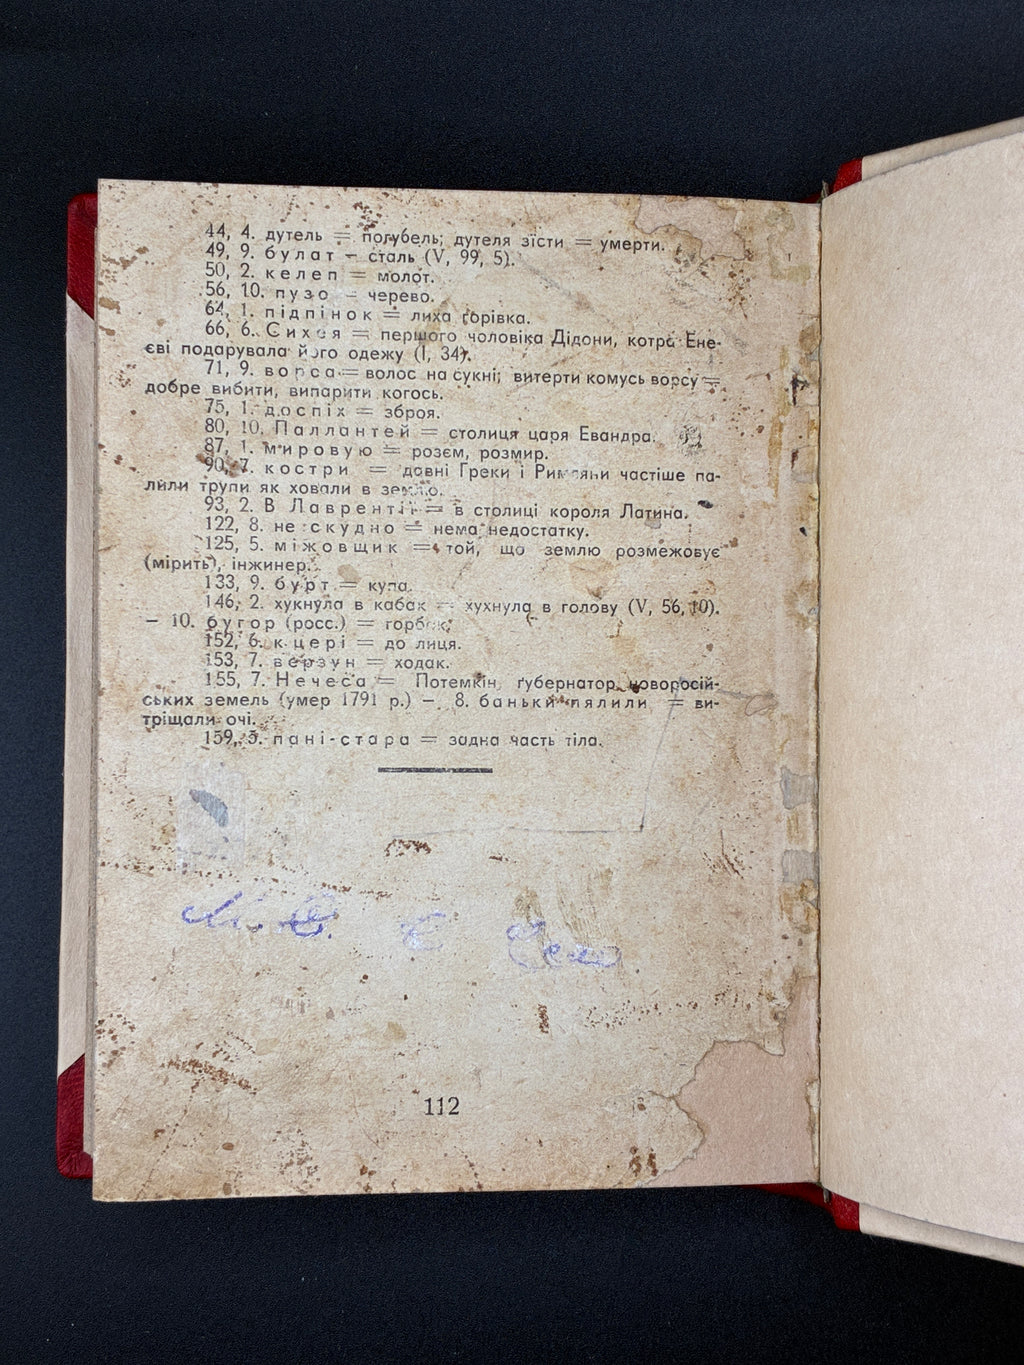 44, 4. дутель = погубель; дутеля зїсти = умерти.
49, 9. булат – сталь (V, 99, 5).
50, 2. келеп = молот.
56, 10. пузо – черево.
64, 1. підпінок = лиха горівка.
66, 6. Сихея = першого чоловіка Дідони, котра Ене-
єві подарувала його одежу (I, 34).
71, 9. ворса = волос на сукні; витерти комусь ворсу =
добре вибити, випарити когось.
75, 1. доспіх = зброя.
80, 10. Паллантей = столиця царя Евандра.
87, 1. мировую = розєм, розмир.
90, 7. костри = давні Греки і Римляни частіше па-
лили трупи як ховали в землю.
93, 2. В Лаврентії = в столиці короля Латина.
122, 8. не скудно = нема недостатку.
125, 5. міжовщик = той, що землю розмежовує
(мірить), інжинер.
133, 9. бурт = купа.
146, 2. хукнула в кабак — хухнула в голову (V, 56, 10).
— 10. бугор (росс.) = горбок.
152, 6. к цері = до лиця.
153, 7. верзун = ходак.
155, 7. Нечеса = Потемкін, ґубернатор новоросій-
ських земель (умер 1791 р.) — 8. баньки пялили = ви-
тріщали очі.
159, 5. пані-стара = задна часть тіла.
112